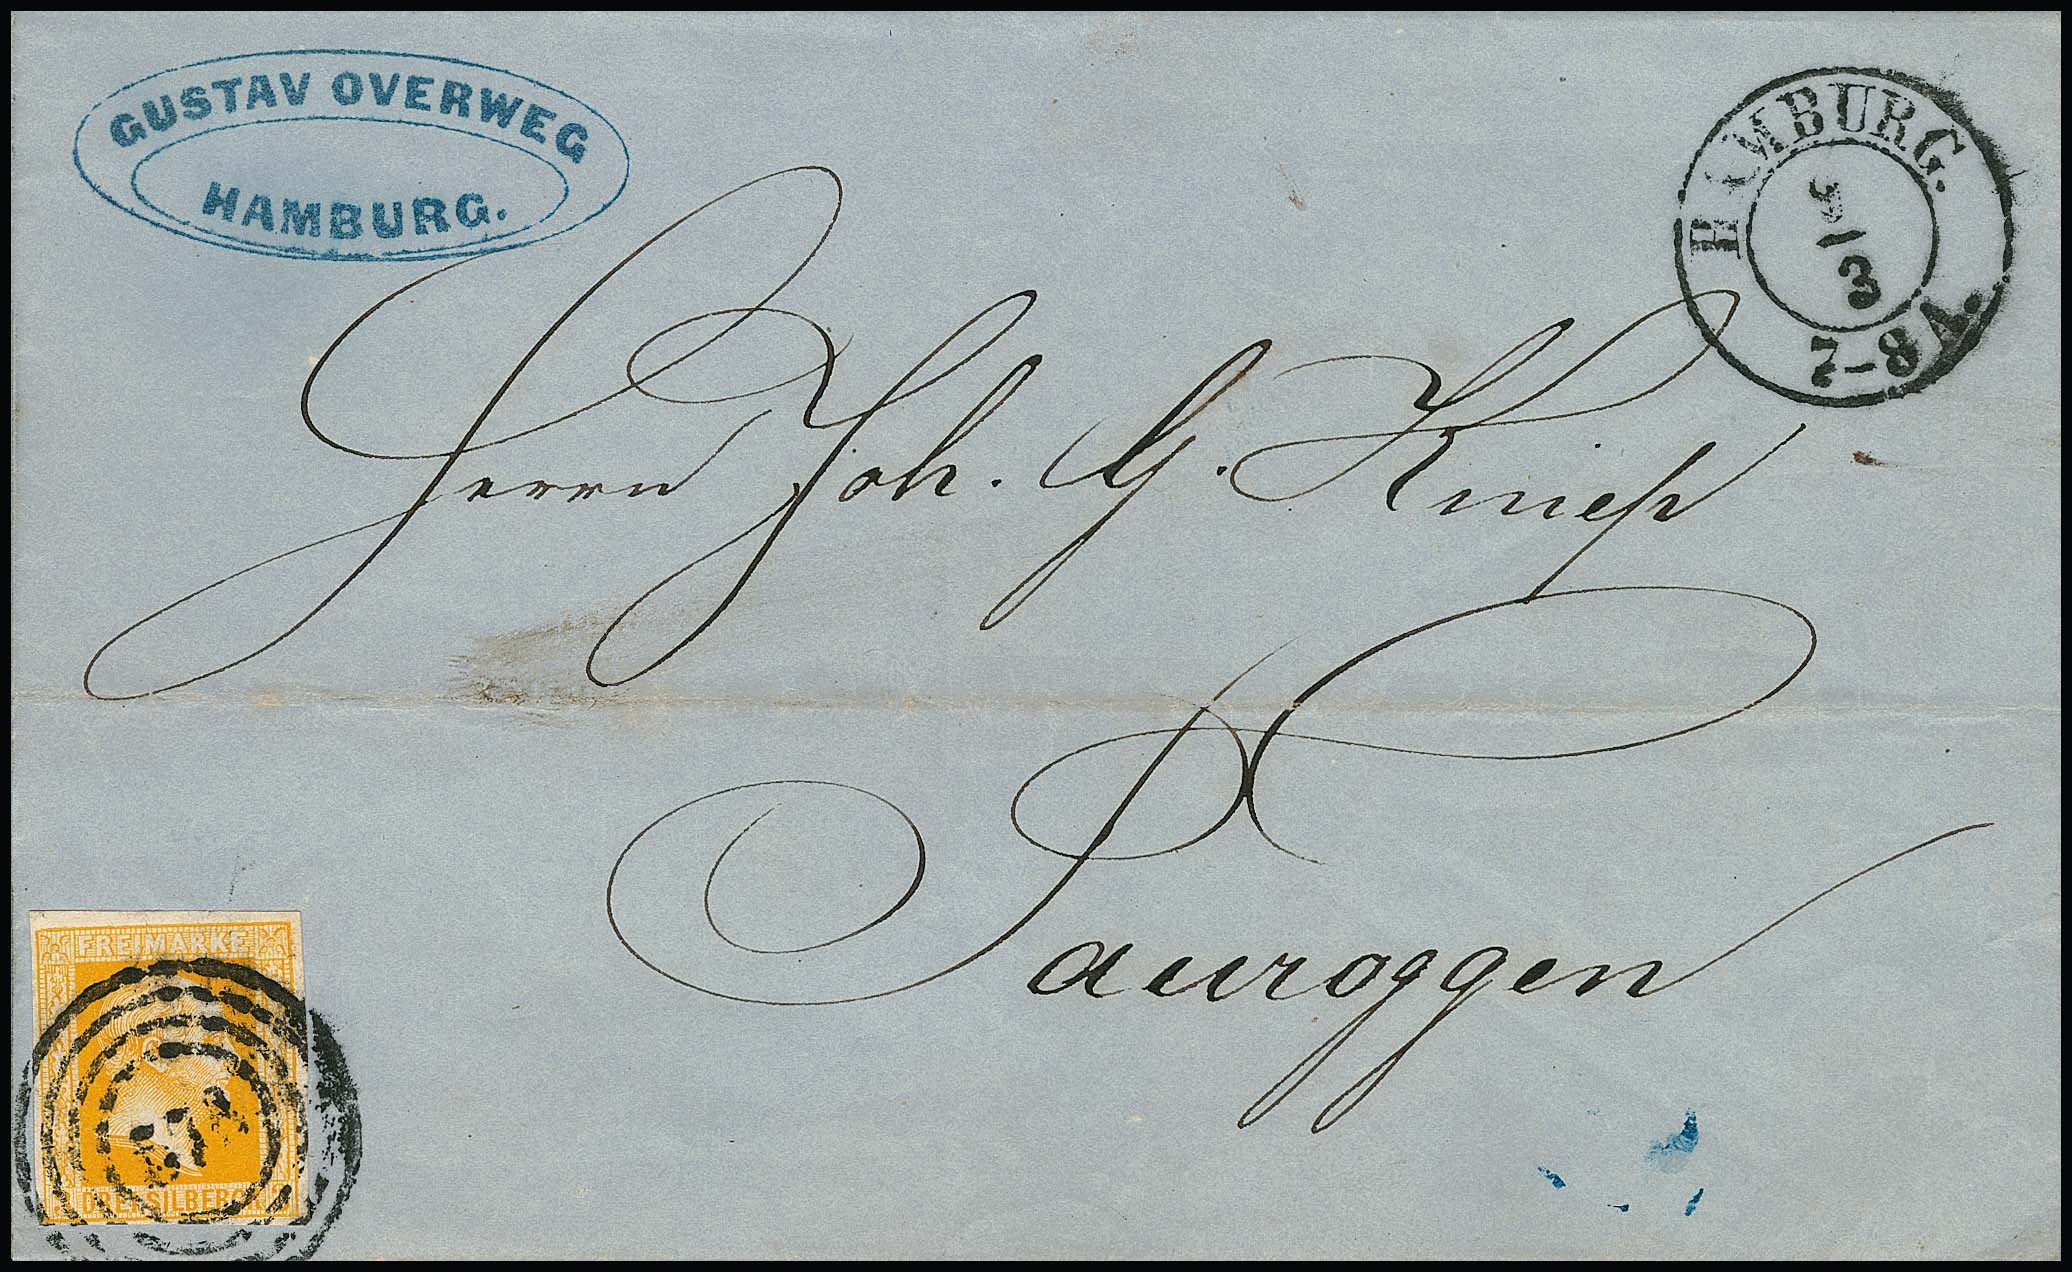 GUSTAV OVERWEG
HAMBURG.
HAMBURG.
3
7-8 A.
Herrn Joh. G. Kniep
Tauroggen
FREIMARKE
DREI SILBERGR.